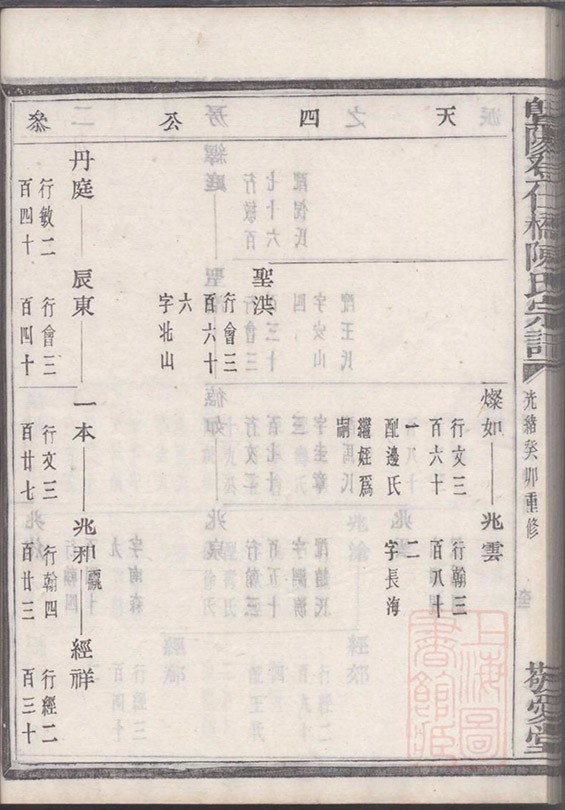 暨陽孝仁橋陳氏宗譜
光緒癸卯重修
敬愛堂
天四公叅
燦如
行文三
百六十
一
配邊氏
繼姪爲
嗣
兆雲
行翰三
百八十
二
字長海
聖洪
行會三
百六十
六
字北山
丹庭
行敏二
百四十
辰東
行會三
百四十
一本
行文三
百廿七
兆和
行翰四
百廿三
經祥
行經二
百三十
上海圖
書館藏